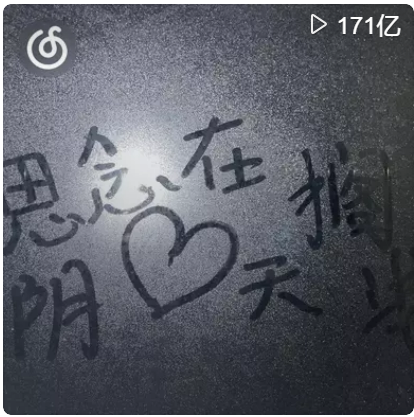 171亿
思念在搁
阴天